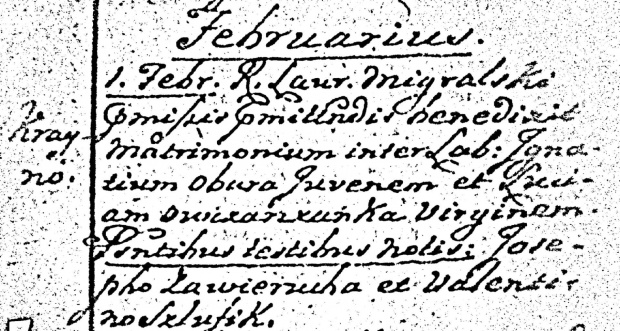 Februarius.
1. Febr. R. Laur. Migralski
Pmissis Pmittendis benedixit
Kray-
matrimonium inter Lab: Igna-
no.
tium Obara Juvenem et Luci-
am Owczarzanka Virginem.
Pntibus testibus notis: Jose-
pho Zawierucha et Valenti-
no Szlufik.